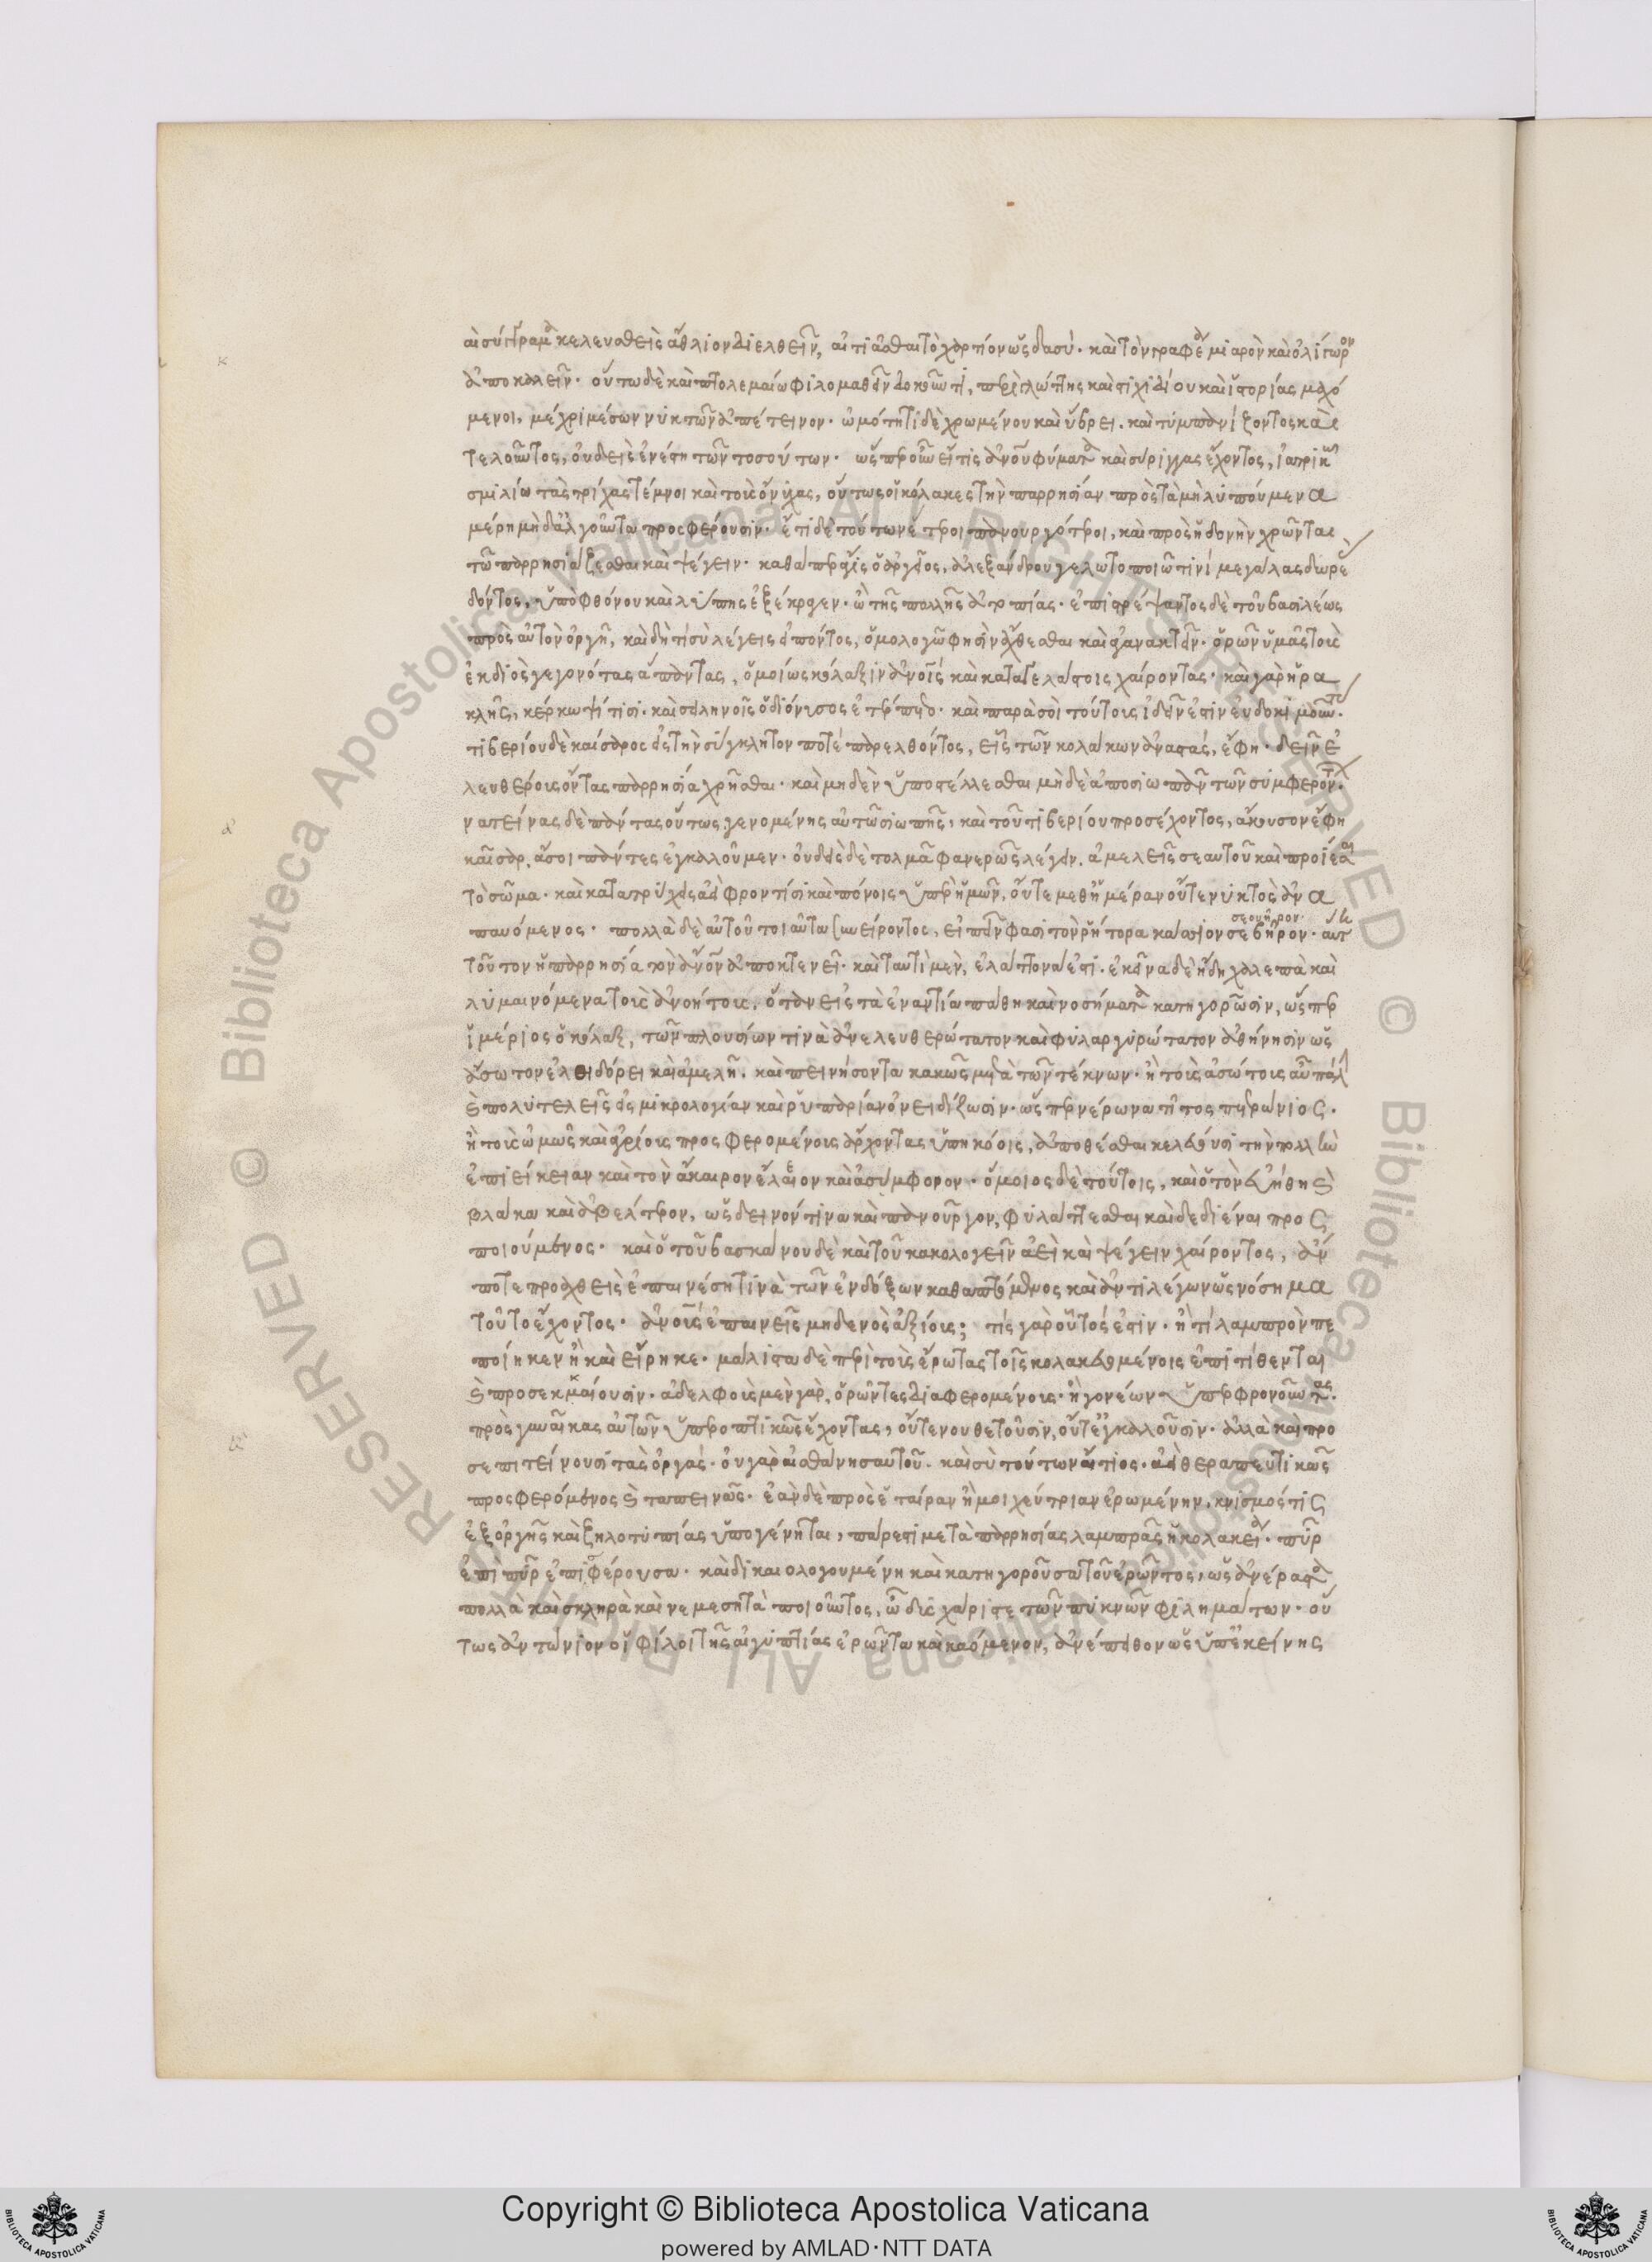 αι σύγγραμμα κελευσθεὶς ἄθλιον διελθεῖν, αἰτιᾶσθαι τὸ χαρτίον ὡς δασύ. καὶ τὸν γραφέα μιαρὸν καὶ ὀλίγωρον
ἀποκαλεῖν. οὕτω δὲ καὶ πτολεμαίω φιλομαθεῖν δοκοῦντι, περὶ γλώττης καὶ στιχιδίου καὶ ἱστορίας μαχό
μενοι, μέχρι μέσων νυκτῶν ἀπέτεινον. ὠμότητι δὲ χρωμένου καὶ ὕβρει. καὶ τυμπανίζοντος καὶ
τελοῦντος, οὐδεὶς ἐνέστη τῶν τοσούτων. ὥσπερ οὖν εἴ τις ἀνθρώπου φύματα καὶ σύριγγας ἔχοντος, ἰατρικῶ
σμιλίω τὰς τρίχας τέμνοι καὶ τοὺς ὄνυχας, οὕτως οἱ κόλακες τὴν παρρησίαν πρὸς τὰ μὴ λυπούμενα
μέρη μηδ' ἀλγοῦντα προσφέρουσιν. ἔτι δὲ τούτων ἕτεροι πανουργότεροι, καὶ πρὸς ἡδονὴν χρῶνται
τῶ παρρησιάζεσθαι καὶ ψέγειν. καθάπερ ἄγις ὁ ἀργεῖος, ἀλεξάνδρου γελωτοποιῶ τινὶ μεγάλας δωρε
δόντος, ὑπὸ φθόνου καὶ λύπης ἐξέκραγεν. ὢ τῆς πολλῆς ἀτοπίας. ἐπιστρέψαντος δὲ τοῦ βασιλέως
πρὸς αὐτὸν ὀργῆ, καὶ δὴ τί σὺ λέγεις εἰπόντος, ὁμολογῶ φησὶν ἄχθεσθαι καὶ ἀγανακτεῖν. ὁρῶν ὑμᾶς τοὺς
ἐκ διὸς γεγονότας ἅπαντας, ὁμοίως κόλαξιν ἀνθρώποις καὶ καταγελάστοις χαίροντας. καὶ γὰρ ἡρα
κλῆς, κέρκωψί τισι. καὶ σειληνοῖς ὁ διόνυσος ἐτέρπετο. καὶ παρὰ σοὶ τούτους ἰδεῖν ἐστιν εὐδοκιμοῦντας.
τιβερίου δὲ καίσαρος εἰς τὴν σύγκλητόν ποτε παρελθόντος, εἷς τῶν κολάκων ἀναστάς, ἔφη. δεῖν ἐ
λευθέρους ὄντας παρρησία χρῆσθαι. καὶ μηδὲν ὑποστέλλεσθαι μηδὲ ἀποσιωπᾶν τῶν συμφερόντων.
ἀνατείνας δὲ πάντας οὕτως, γενομένης αὐτῶ σιωπῆς, καὶ τοῦ τιβερίου προσέχοντος, ἄκουσον ἔφη
καῖσαρ, ἅ σοι πάντες ἐγκαλοῦμεν. οὐδεὶς δὲ τολμᾶ φανερῶς λέγειν. ἀμελεῖς σεαυτοῦ καὶ προίεσαι
τὸ σῶμα. καὶ κατατρύχεις ἀεὶ φροντίσι καὶ πόνοις ὑπὲρ ἡμῶν, οὔτε μεθ' ἡμέραν οὔτε νυκτὸς ἀνα
παυόμενος. πολλὰ δὲ αὐτοῦ τοιαῦτα συνείροντος, εἰπεῖν φασὶ τὸν ῥήτορα κάσσιον σεβῆρον. αὕτη
σεουῆρον.
τοῦτον ἡ παρρησία τὸν ἄνθρωπον ἀποκτενεῖ. καὶ ταυτὶ μὲν, ἐλάττονά ἐστι. ἐκεῖνα δὲ ἤδη χαλεπὰ καὶ
λυμαινόμενα τοὺς ἀνοήτους, ὅταν εἰς τὰ ἐναντία πάθη καὶ νοσήματα κατηγορῶσιν, ὥσπερ
ἱμέριος ὁ κόλαξ, τῶν πλουσίων τινὰ ἀνελευθερώτατον καὶ φιλαργυρώτατον ἀθήνησιν ὡς
ἄσωτον ἐλοιδόρει καὶ ἀμελῆ. καὶ πεινήσοντα κακῶς μετὰ τῶν τέκνων. ἢ τοὺς ἀσώτους αὖ πάλιν
καὶ πολυτελεῖς εἰς μικρολογίαν καὶ ῥυπαρίαν ὀνειδίζωσιν. ὥσπερ νέρωνα τίτος πετρώνιος.
ἢ τοὺς ὠμῶς καὶ ἀγρίως προσφερομένους ἄρχοντας ὑπηκόοις, ἀποθέσθαι κελεύωσι τὴν πολλὴν
ἐπιείκειαν καὶ τὸν ἄκαιρον ἔλεον καὶ ἀσύμφορον. ὅμοιος δὲ τούτοις, καὶ ὁ τὸν εὐήθη καὶ
βλάκα καὶ ἀβέλτερον, ὡς δεινόν τινα καὶ πανοῦργον, φυλάττεσθαι καὶ δεδιέναι προς
ποιούμενος. καὶ ὁ τοῦ βασκάνου δὲ καὶ τοῦ κακολογεῖν ἀεὶ καὶ ψέγειν χαίροντος, ἄν
ποτε προαχθεὶς ἐπαινέση τινὰ τῶν ἐνδόξων καθαπτόμενος καὶ ἀντιλέγων ὡς νόσημα
τοῦτο ἔχοντος. ἀνθρώπους ἐπαινεῖς μηδενὸς ἀξίους; τίς γὰρ οὗτός ἐστιν. ἢ τί λαμπρὸν πε
ποίηκεν ἢ καὶ εἴρηκε. μάλιστα δὲ περὶ τοὺς ἔρωτας τοῖς κολακευομένοις ἐπιτίθενται
καὶ προσεκκαίουσιν. ἀδελφοῖς μὲν γὰρ, ὁρῶντες διαφερομένους. ἢ γονέων ὑπερφρονοῦντας.
πρὸς γυναῖκας αὐτῶν ὑπεροπτικῶς ἔχοντας, οὔτε νουθετοῦσιν, οὔτ' ἐγκαλοῦσιν. ἀλλὰ καὶ προ
σεπιτείνουσι τὰς ὀργάς. οὐ γὰρ αἰσθάνη σαυτοῦ. καὶ σὺ τούτων αἴτιος. ἀεὶ θεραπευτικῶς
προσφερόμενος καὶ ταπεινῶς. ἐὰν δὲ πρὸς ἑταίραν ἢ μοιχεύτριαν ἐρωμένην, κνισμός τις
ἐξ ὀργῆς καὶ ζηλοτυπίας ὑπογένηται, πάρεστι μετὰ παρρησίας λαμπρᾶς ἡ κολακεία. πῦρ
ἐπὶ πῦρ ἐπιφέρουσα. καὶ δικαιολογουμένη καὶ κατηγοροῦσα τοῦ ἐρῶντος, ὡς ἀνέραστα
πολλὰ καὶ σκληρὰ καὶ νεμεσητὰ ποιοῦντος, ὦ δυσχάριστε τῶν πυκνῶν φιλημάτων. οὕ
τως ἀντώνιον οἱ φίλοι τῆς αἰγυπτίας ἐρῶντα καὶ καόμενον, ἀνέπειθον ὡς ὑπ' ἐκείνης
Copyright © Biblioteca Apostolica Vaticana
powered by AMLAD·NTT DATA